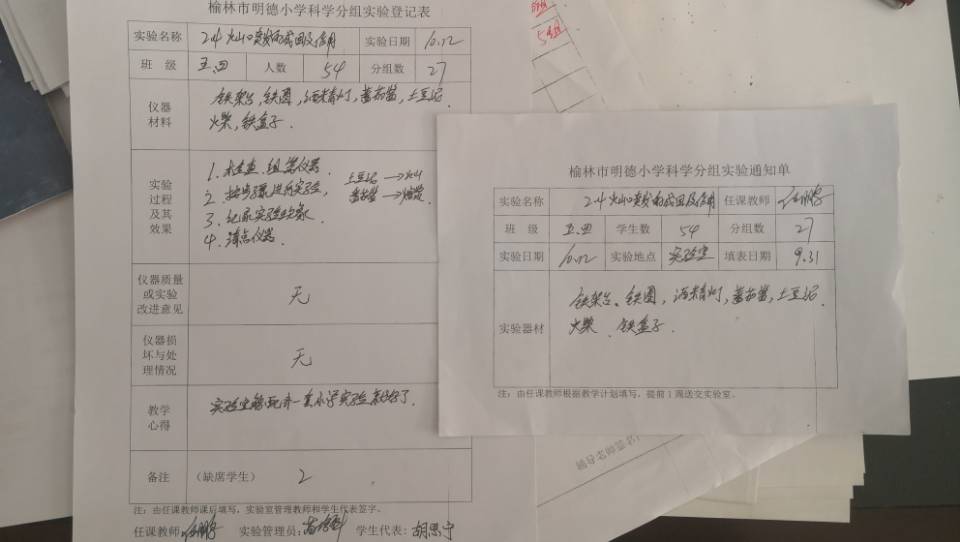 榆林市明德小学科学分组实验登记表
实验名称 2.4火山喷发的成因及作用 实验日期 10.12
班 级 五.四 人数 54 分组数 27
仪器材料 铁架台,铁圈,酒精灯,蕃茄酱,土豆泥,
火柴,铁盒子.
实验过程及其效果
1. 检查、组装仪器. 土豆泥→火山
2. 按步骤进行实验, 蕃茄酱→
3. 记录实验现象
4. 清点仪器.
仪器质量或实验改进意见 无
仪器损坏与处理情况 无
教学心得 实验室能配齐一套小学实验就好了.
备注 (缺席学生) 2
注:由任课教师课后填写,实验室管理教师和学生代表签字。
任课教师: 实验管理员: 学生代表: 胡思宁
5组
榆林市明德小学科学分组实验通知单
实验名称 2.4火山喷发的成因及作用 任课教师
班 级 五.四 学生数 54 分组数 27
实验日期 10.12 实验地点 实验室 填表日期 9.31
实验器材 铁架台、铁圈,酒精灯,蕃茄酱,土豆泥.
火柴、铁盒子.
注:由任课教师根据教学计划填写,提前1周送交实验室。